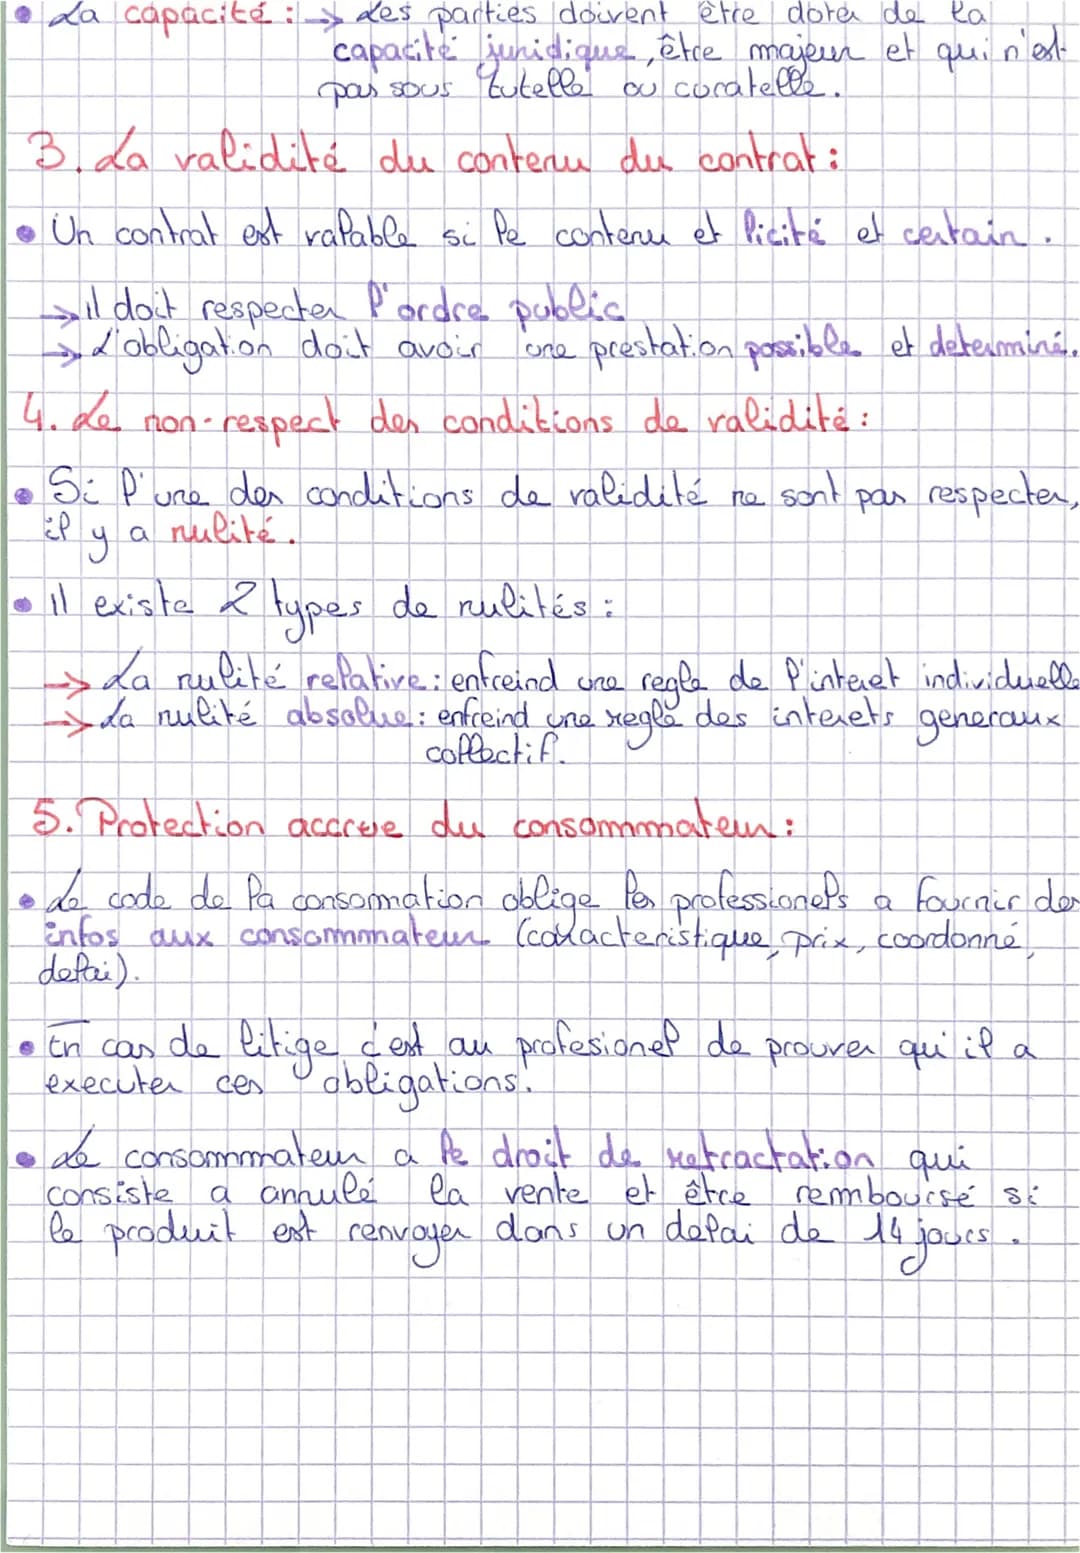 • La capacité : → Les parties doivent être doter de la
capacité juridique, être majeur et qui n'est
pas sous tutelle ou curatelle.
3. La validité du contenu du contrat :
• Un contrat est valable si le contenu et licité et certain.
→ il doit respecter l'ordre public
→ L'obligation doit avoir une prestation possible et determiné.
4. Le non-respect des conditions de validité :
• Si l'une des conditions de validité ne sont pas respecter,
il y a nulité.
• Il existe 2 types de nulités :
→ La nulité relative : enfreind une regle de l'interet individuelle
→ La nulité absolue : enfreind une regle des interets generaux
collectif.
5. Protection accrue du consommateur :
• Le code de la consommation oblige les professionels a fournir des
infos aux consommateur (caracteristique, prix, coordonné,
delai).
• En cas de litige c'est au profesionel de prouver qu'il a
executer ces obligations.
• Le consommateur a le droit de retractation qui
consiste a annulé la vente et être remboursé si
le produit est renvoyer dans un delai de 14 jours.